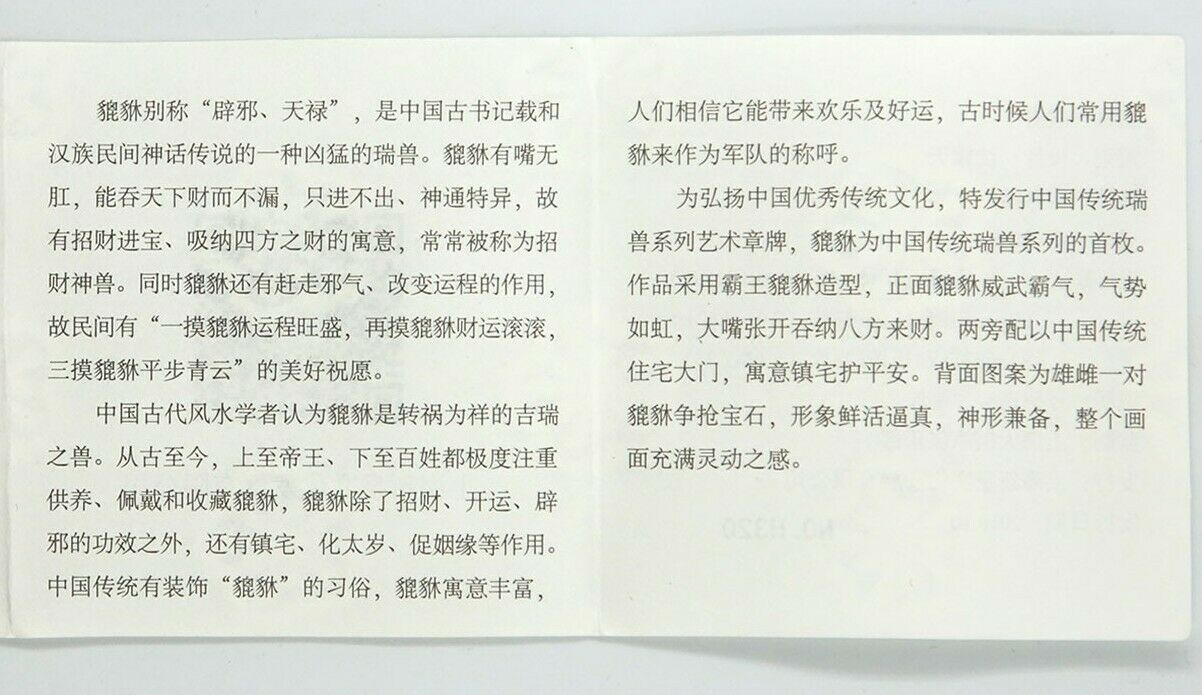 貔貅别称“辟邪、天禄”，是中国古书记载和
汉族民间神话传说的一种凶猛的瑞兽。貔貅有嘴无
肛，能吞天下财而不漏，只进不出、神通特异，故
有招财进宝、吸纳四方之财的寓意，常常被称为招
财神兽。同时貔貅还有赶走邪气、改变运程的作用，
故民间有“一摸貔貅运程旺盛，再摸貔貅财运滚滚，
三摸貔貅平步青云”的美好祝愿。
中国古代风水学者认为貔貅是转祸为祥的吉瑞
之兽。从古至今，上至帝王、下至百姓都极度注重
供养、佩戴和收藏貔貅，貔貅除了招财、开运、辟
邪的功效之外，还有镇宅、化太岁、促姻缘等作用。
中国传统有装饰“貔貅”的习俗，貔貅寓意丰富，
人们相信它能带来欢乐及好运，古时候人们常用貔
貅来作为军队的称呼。
为弘扬中国优秀传统文化，特发行中国传统瑞
兽系列艺术章牌，貔貅为中国传统瑞兽系列的首枚。
作品采用霸王貔貅造型，正面貔貅威武霸气，气势
如虹，大嘴张开吞纳八方来财。两旁配以中国传统
住宅大门，寓意镇宅护平安。背面图案为雄雌一对
貔貅争抢宝石，形象鲜活逼真，神形兼备，整个画
面充满灵动之感。
NO. H320